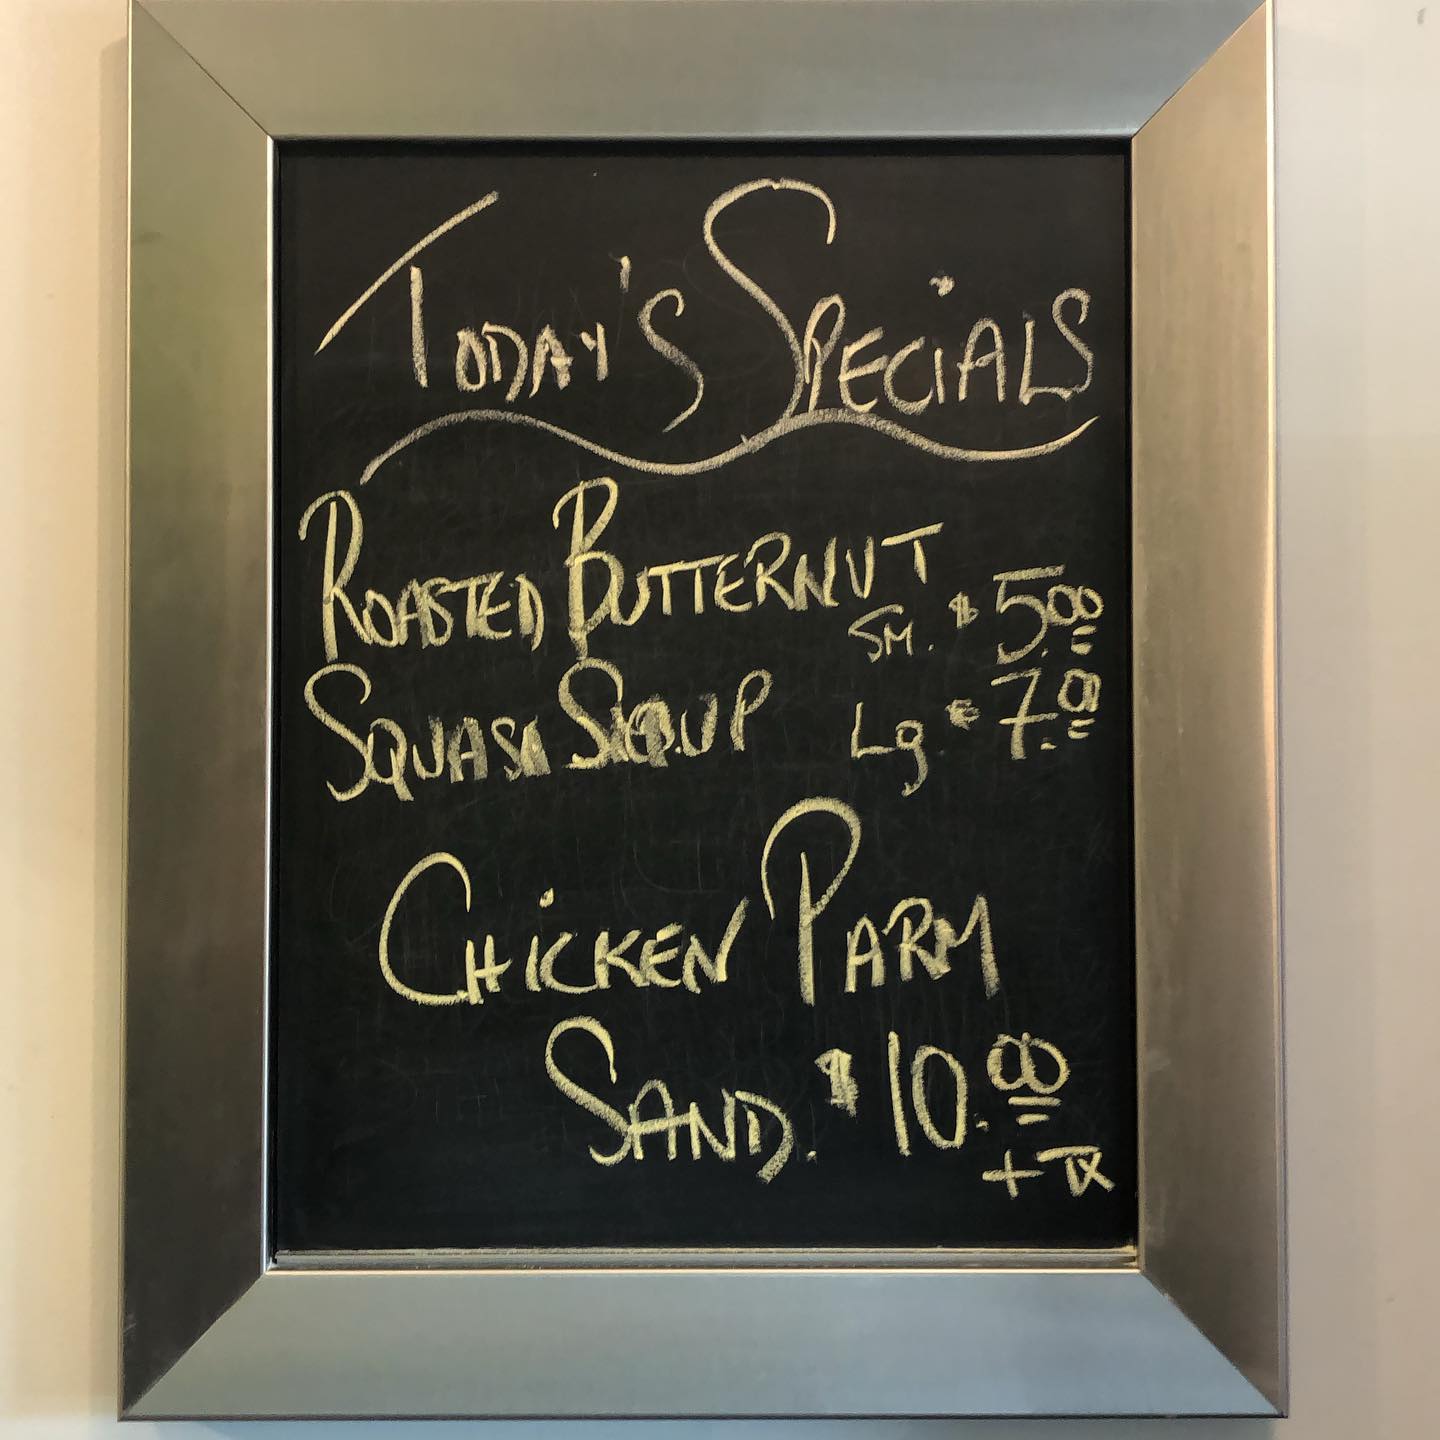 Today's Specials
Roasted Butternut
Sm. $5.00
Squash Soup Lg $7.00
Chicken Parm
Sand. $10.00
+ Tx